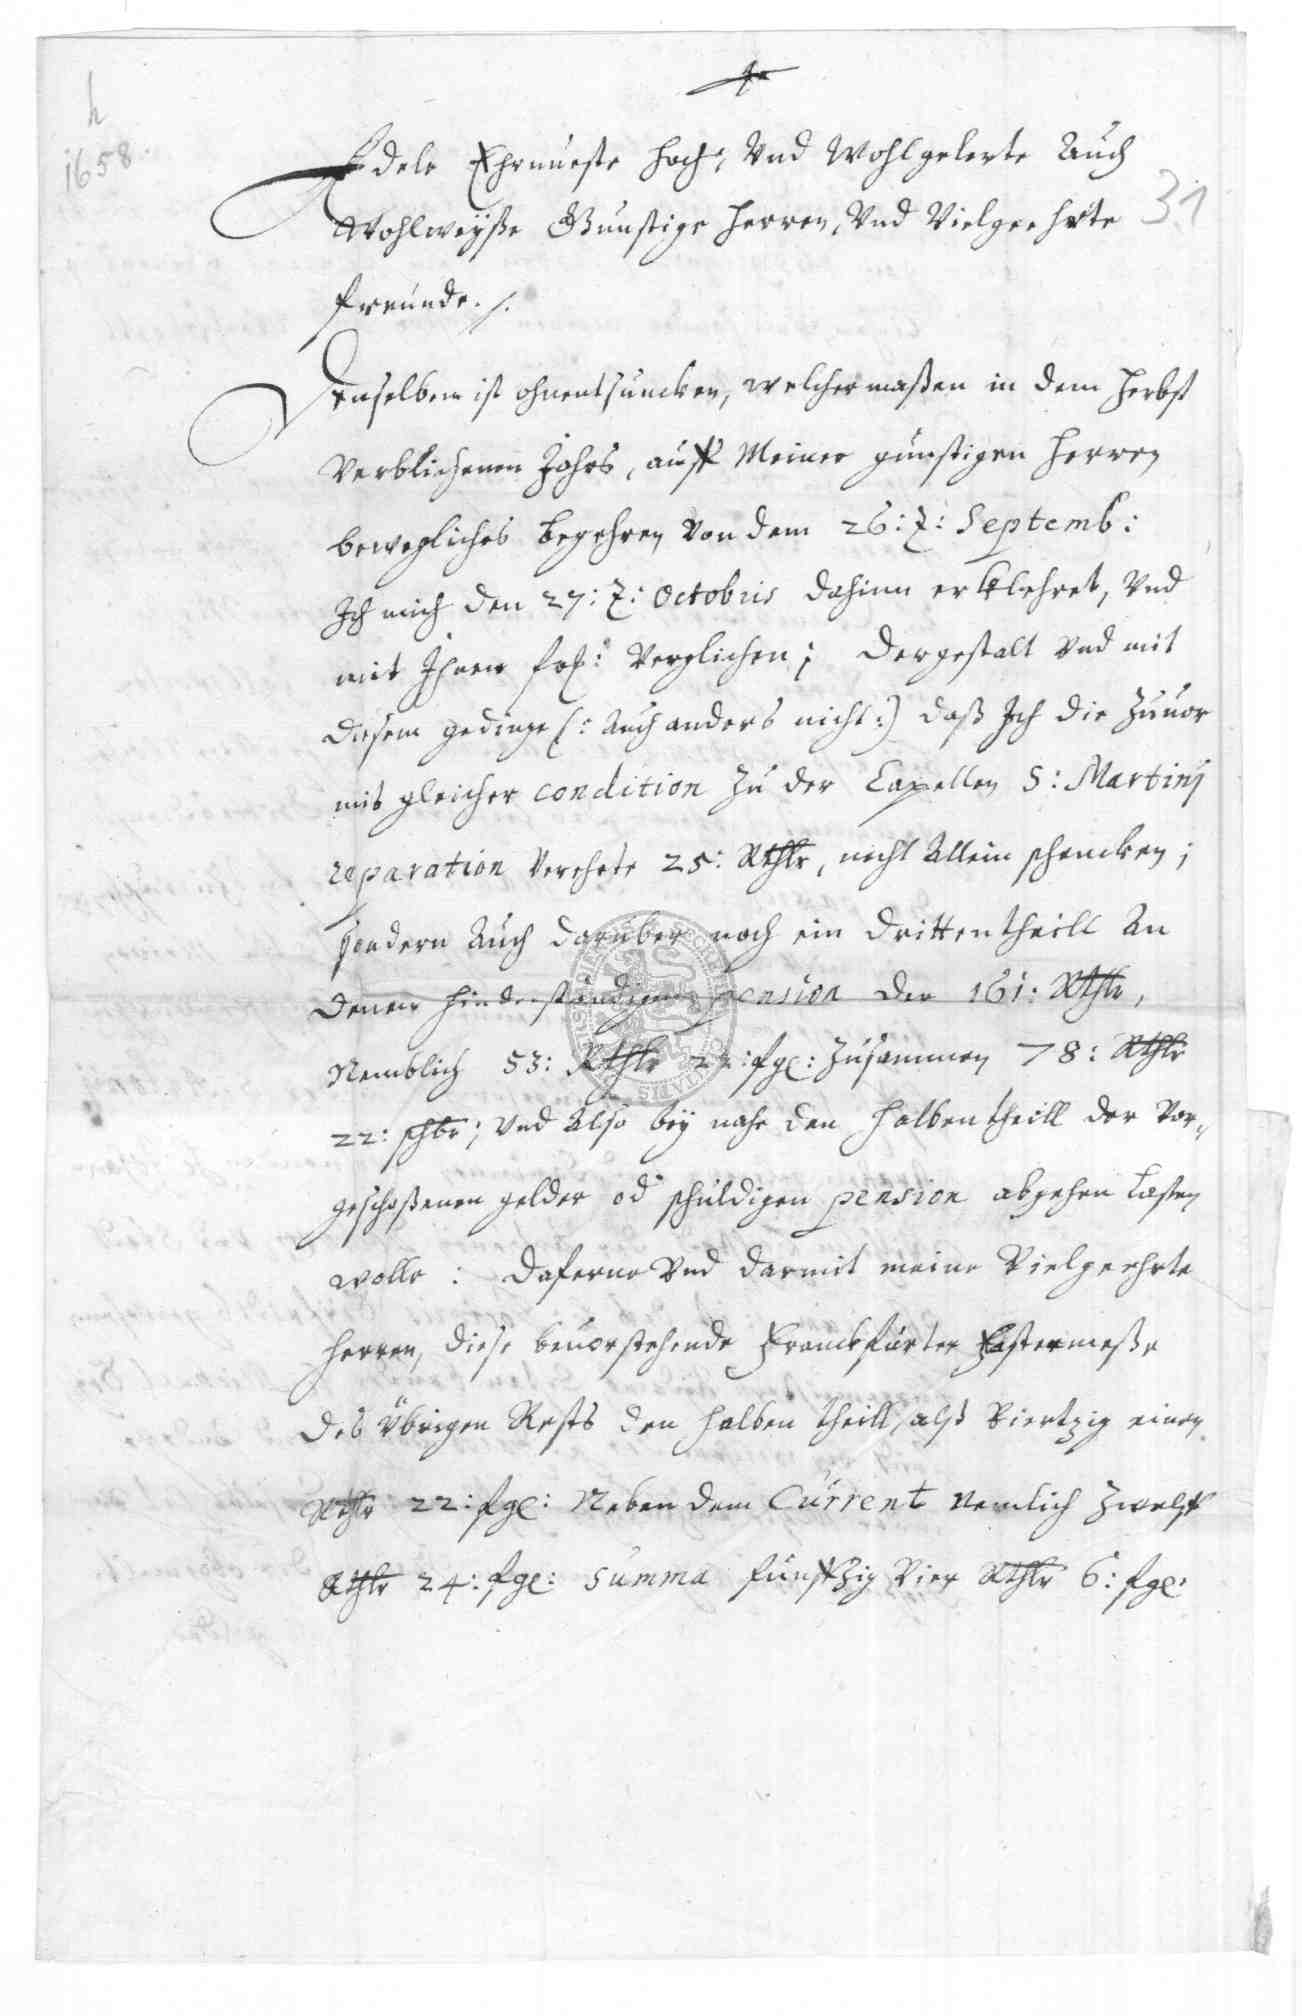 h
1658.
31
Edele Ehrnueste Hoch: Vnd Wohlgelerte Auch
Wohlweyße Gunstige Herren, Vnd Vielgeehrte
freunde ./.
Denselben ist ohnentsuncken, welchermaßen in dem Herbst
Verblichenen Jahrs, auff Meiner günstigen Herren
bewegliches begehren Von dem 26: 7: Septemb:
Ich mich den 27: 7: Octobris dahinn erklehret, Vnd
mit Ihnen Verglichen; dergestalt Vnd mit
diesem gedinge (: Auch anders nicht:) daß Ich die Zuuor
mit gleicher condition Zu der Capellen S: Martinj
reparation Verehrte 25: Rthlr, nicht Allein schencken;
sondern Auch darüber noch ein drittentheill An
denen hinderständigen pension der 161: Rthlr,
Nemblich 53: Rthlr 22: Zusammen 78: Rthlr
22: ; Vnd Also bey nahe den halbentheill der Vor-
geschoßenen gelder od schuldigen pension abgehen laßen
wolle : daferne Vnd darmit meine Vielgeehrte
Herren, diese beuorstehende Franckfurter Fastenmeße
des Übrigen Rests den halben theill, alß Viertzig einen
Rthlr 22: Neben dem Current nemlich Zwelff
Rthlr 24: Summa funffzig Vier Rthlr 6: